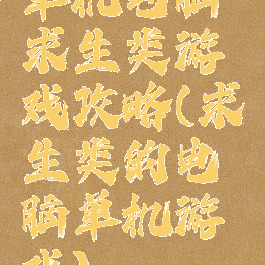 单机电脑
求生类游
戏攻略(求
生类的电
脑单机游
戏)